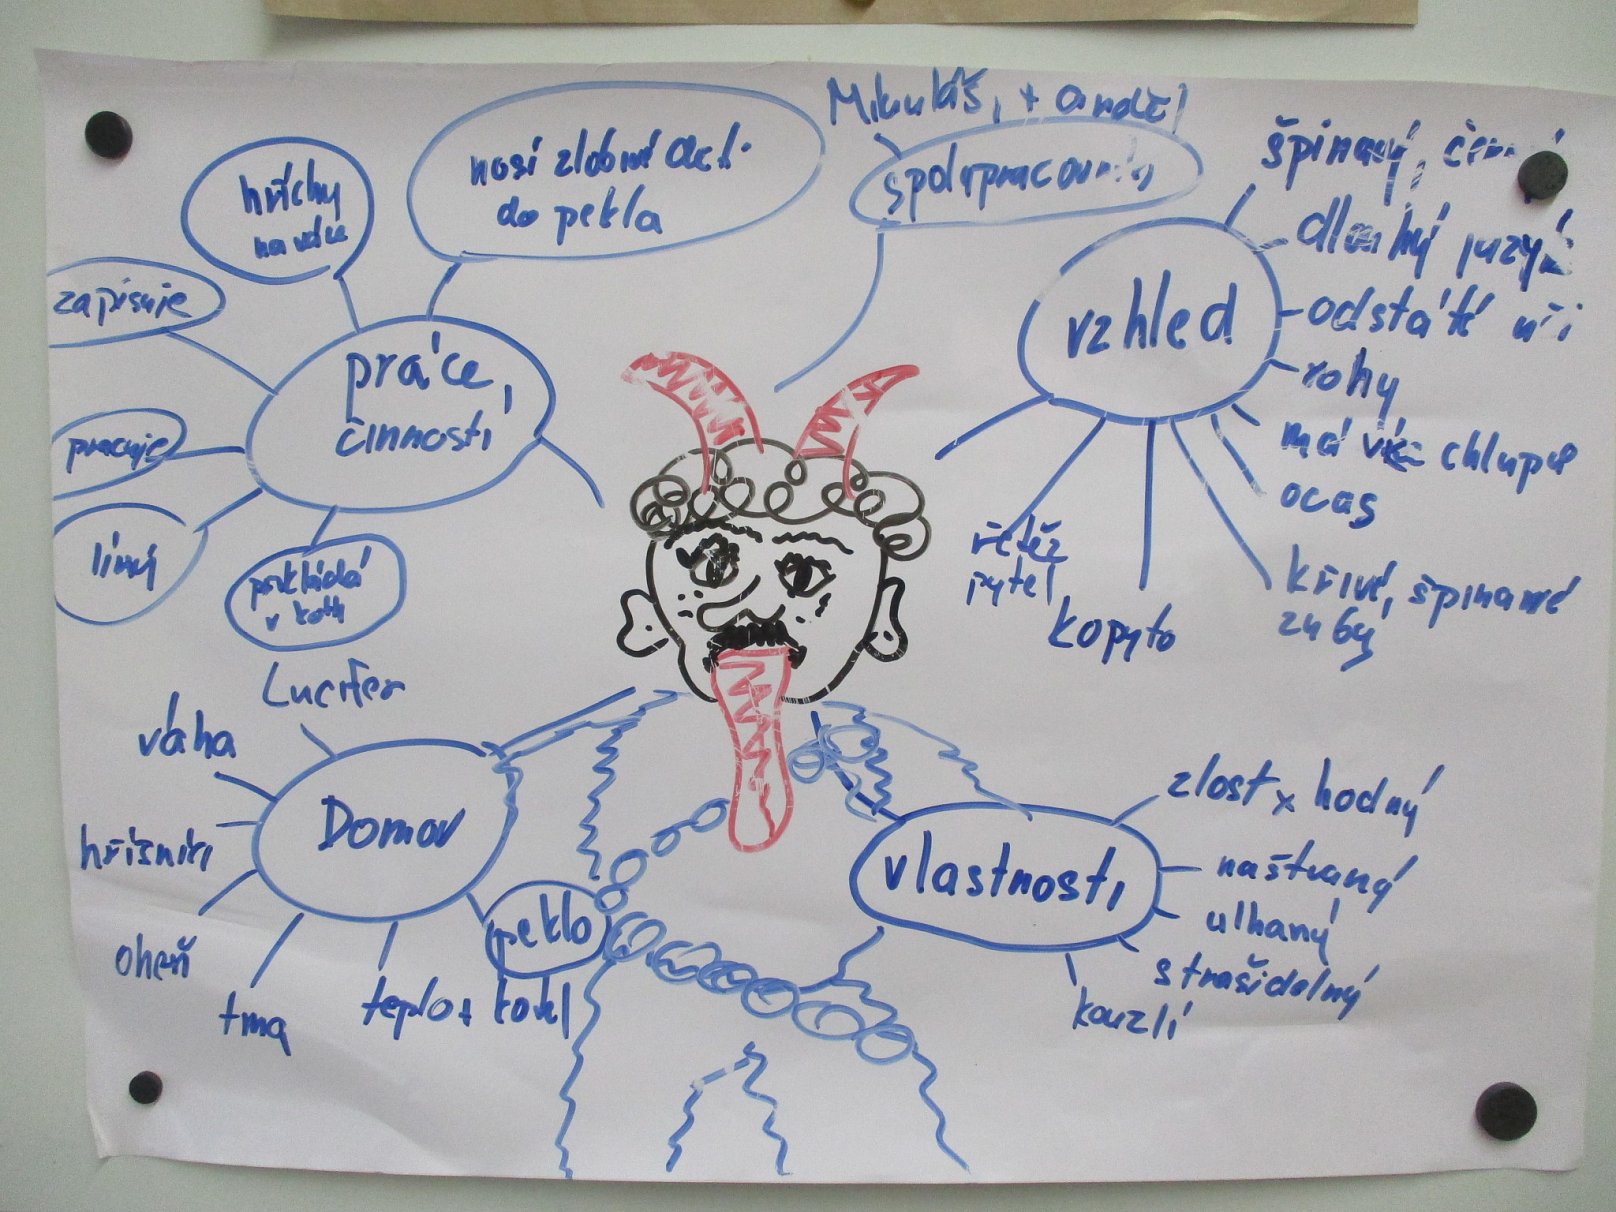 Mikuláš, + anděl
hříchy
nosí zlobivé
do pekla
zapisuje
práce,
činnosti
pracuje
líný
přikládá
v kotli
vzhled
špinavý,
dlouhý jazyk
odstáté uši
rohy
má více chlupů
ocas
křivé, špinavé
zuby
řetěz
pytel
kopyto
Lucifer
váha
Domov
hříšníci
oheň
tma
teplo +
kotel
peklo
vlastnosti
zlost x hodný
naštvaný
ulhaný
strašidelný
kouzlí